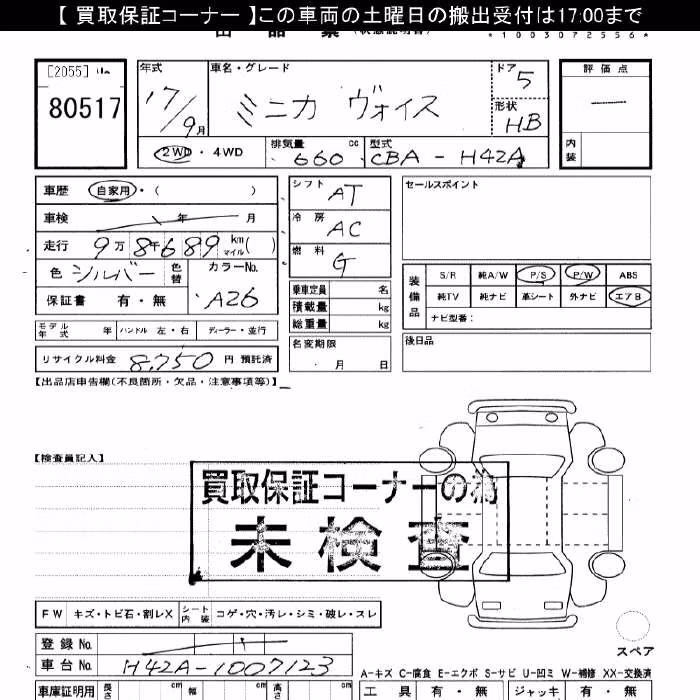 【 買取保証コーナー 】この車両の土曜日の搬出受付は17:00まで
*1003072556*
[2055]
80517
年式 17/9月
車名・グレード ミニカ ヴォイス
ドア 5
形状 HB
評価点 —
内装
2WD ・ 4WD
排気量 660 cc
型式 CBA - H42A
車歴 自家用・( )
車検 年 月
走行 9万8千689 km マイル( )
色 シルバー 色替
カラーNo. A26
保証書 有・無
シフト AT
冷房 AC
燃料 G
乗車定員 名
積載量 kg
総重量 kg
名変期限 月 日
セールスポイント
装備品
S/R 純A/W P/S P/W ABS
純TV 純ナビ 革シート 外ナビ エアB
ナビ型番:
後日品
モデル年式 年 ハンドル 左・右 ディーラー・並行
リサイクル料金 8,750 円 預託済
【出品店申告欄(不良箇所・欠品・注意事項等)】
【検査員記入】
買取保証コーナーの為
未検査
FW キズ・トビ石・割レX シート内装 コゲ・穴・汚レ・シミ・破レ・スレ
登録 No.
車台 No. H42A-1007123
スペア
A-キズ C-腐食 E-エクボ S-サビ U-凹ミ W-補修 XX-交換済
車庫証明用 長さ cm 幅 cm 高さ cm
工具 有・無 ジャッキ 有・無